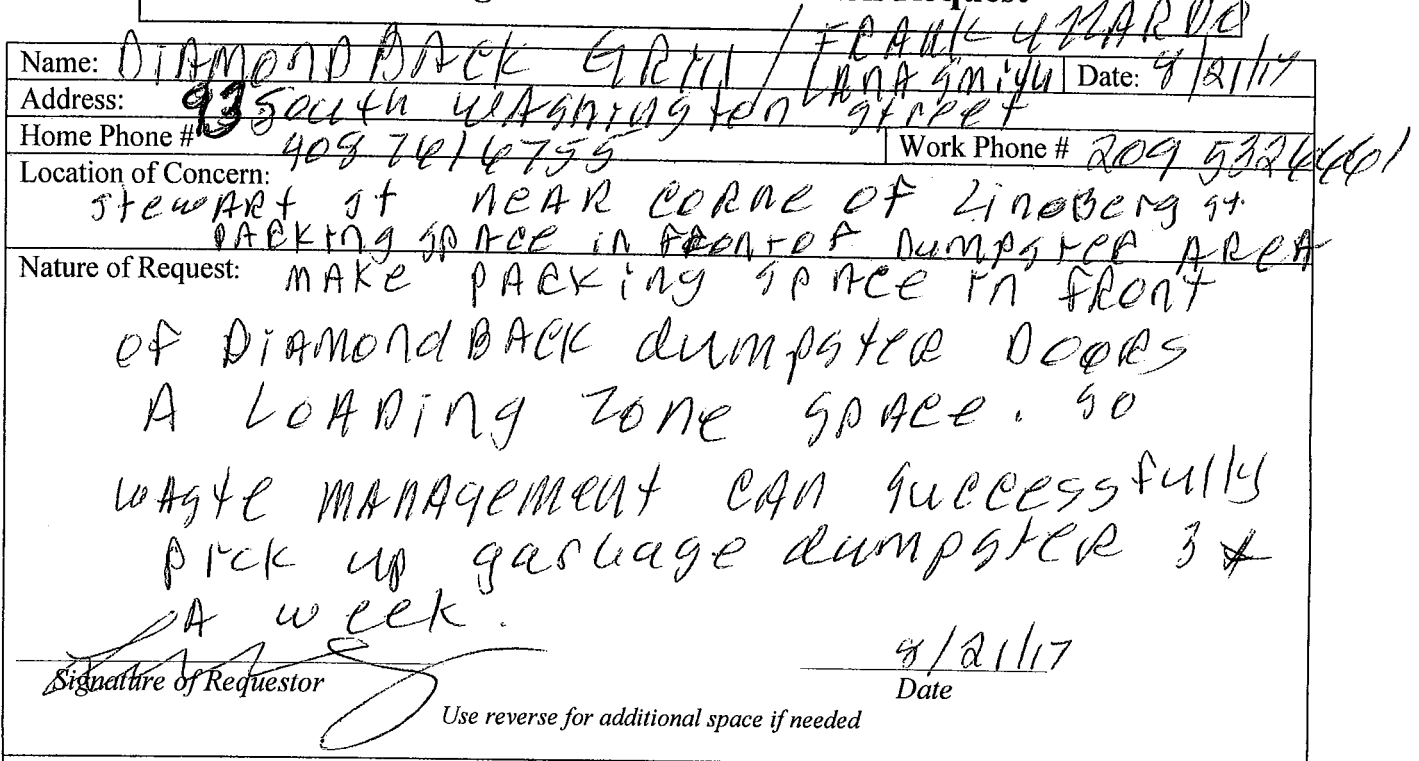 Request
Name: DiAMOnD BACK GRill / FRANK
LANA Date: 8/21/17
Address: 93 South WAShington Street
Home Phone # 408 7616755 Work Phone # 209 5326661
Location of Concern:
StewARt St neAR CORne OF LinoBerg St.
PARKing SpACe in FRont oF DumpsteR AReA
Nature of Request: MAKe pARKing SpACe in fRont
oF DiAMondBACK dumpsteR DooRs
A LOADing Zone SpACe. So
WASte MANAGEMent CAn SuCCessfully
piCK up garbage dumpsteR 3 x
A week.
8/21/17
Signature of Requestor Date
Use reverse for additional space if needed